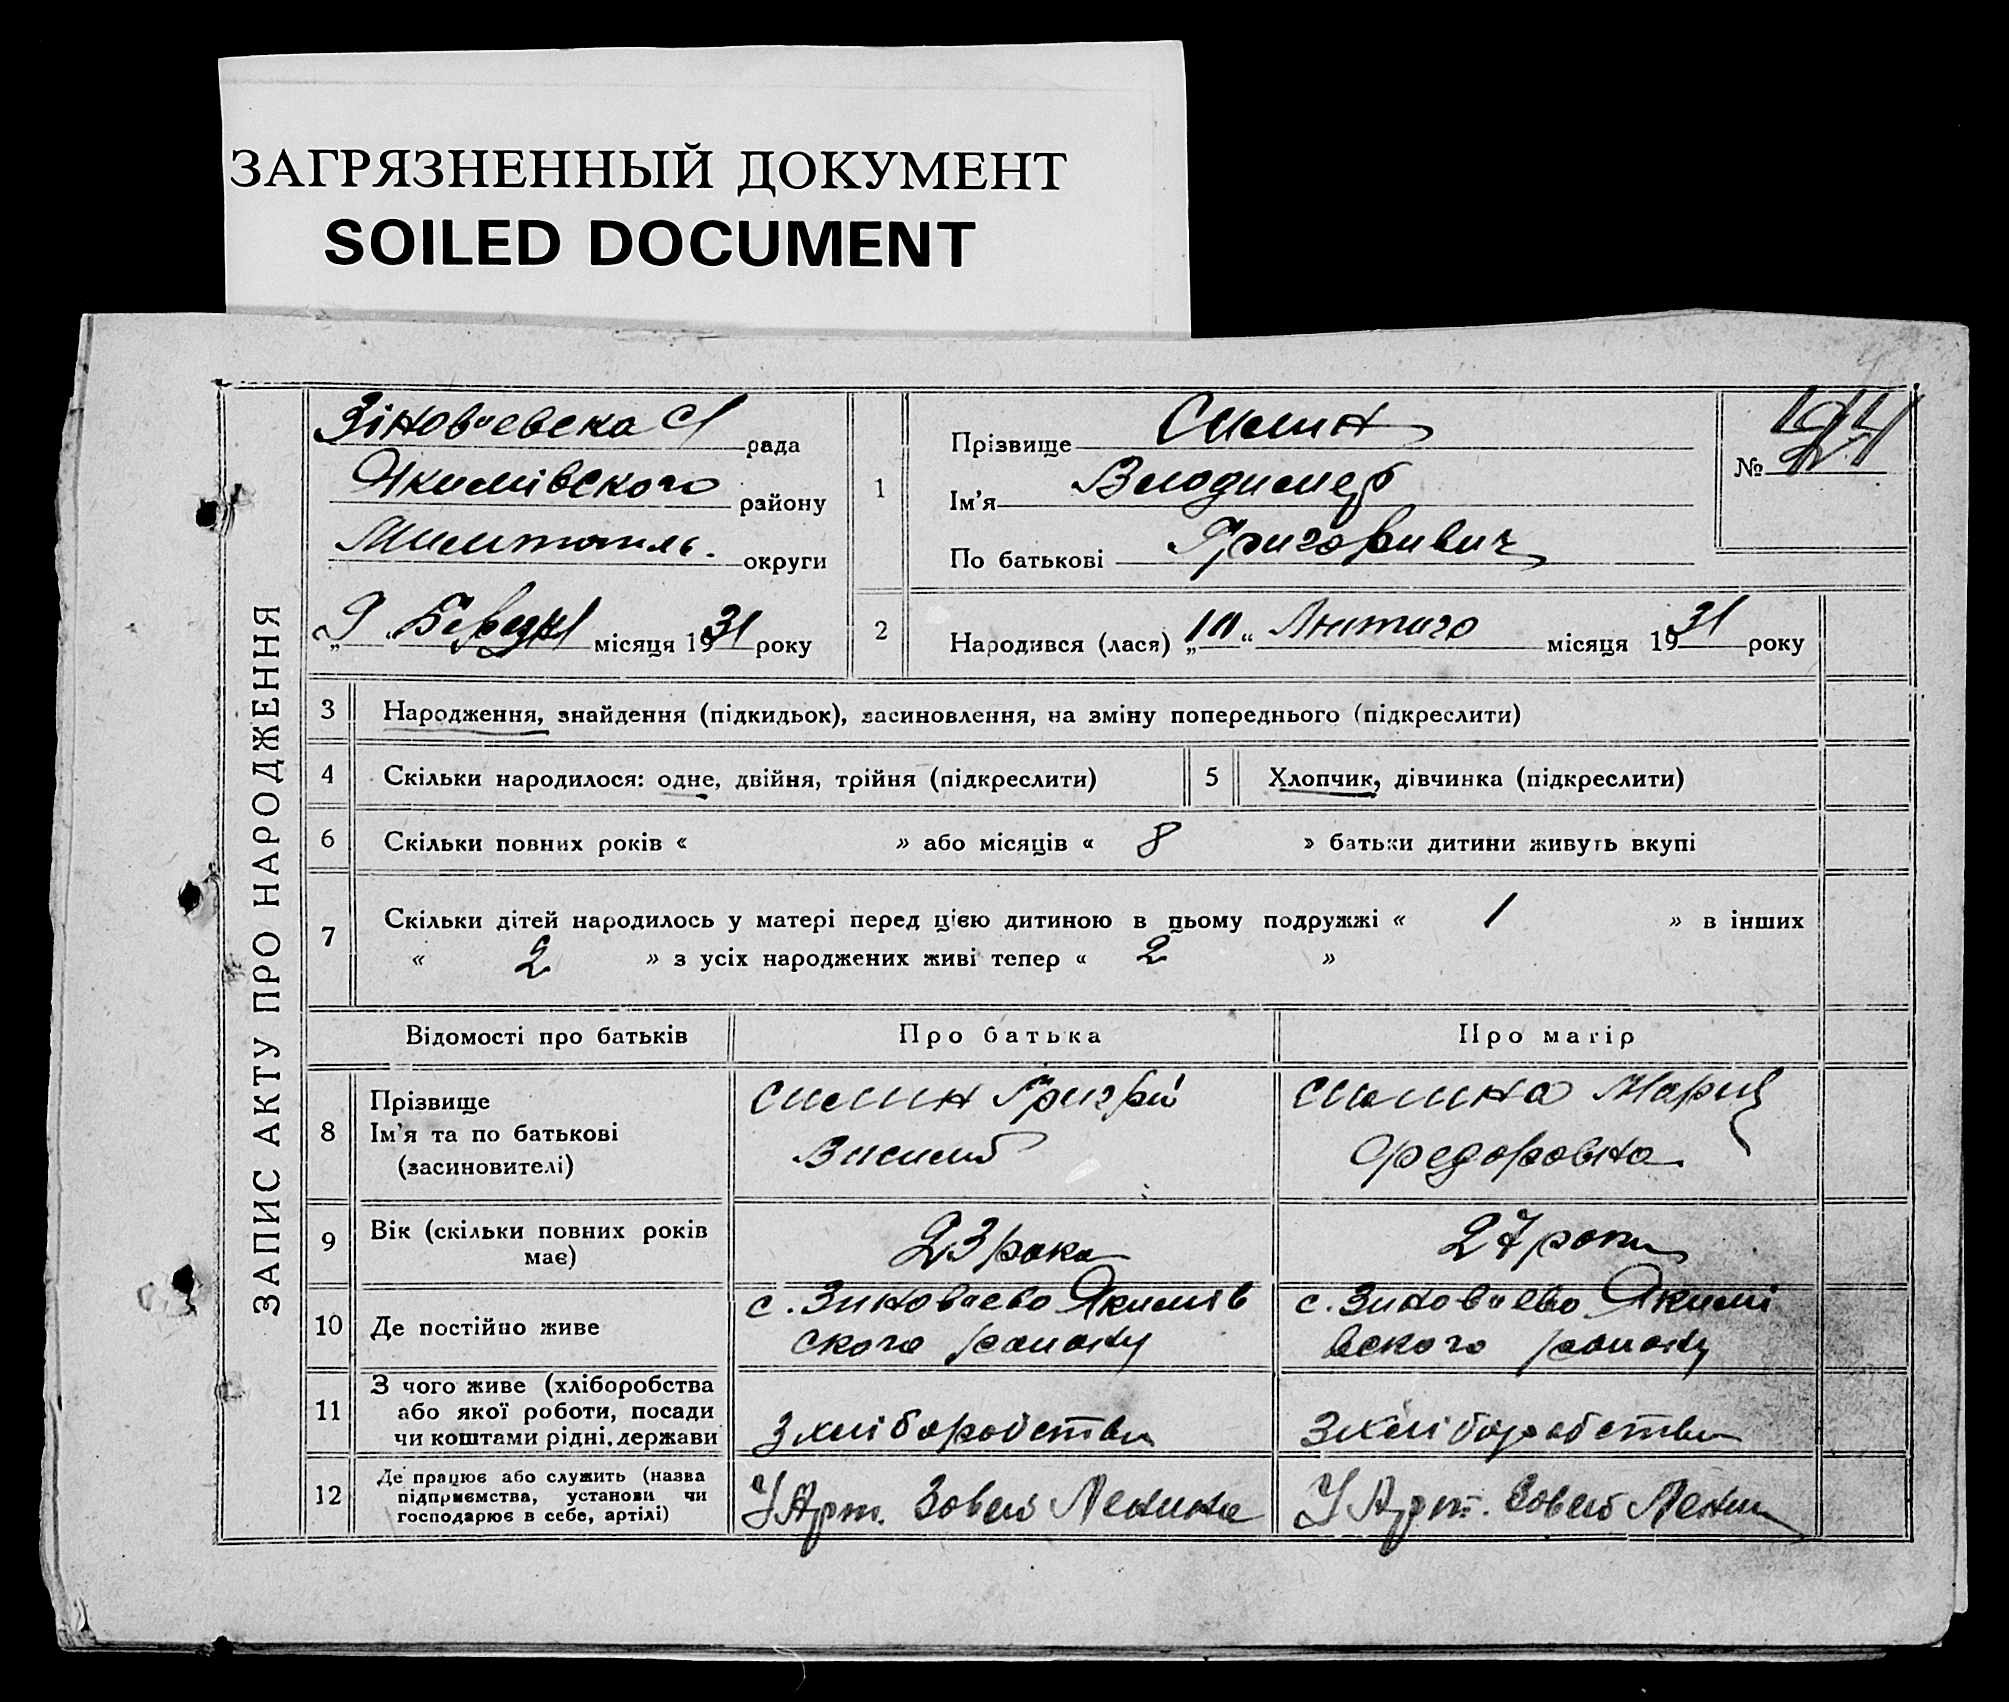 ЗАГРЯЗНЕННЫЙ ДОКУМЕНТ
SOILED DOCUMENT
ЗАПИС АКТУ ПРО НАРОДЖЕННЯ
рада
Якимівского району
округи
місяця 1931 року
1
Прізвище
Ім'я Володимер
По батькові Григоривич
№
2
Народився (лася) „ “ Лютого місяця 1931 року
3 Народження, знайдення (підкидьок), засиновлення, на зміну попереднього (підкреслити)
4 Скільки народилося: одне, двійня, трійня (підкреслити)
5 Хлопчик, дівчинка (підкреслити)
6 Скільки повних років « » або місяців « 8 » батьки дитини живуть вкупі
7 Скільки дітей народилось у матері перед цією дитиною в цьому подружжі « 1 » в інших
« 2 » з усіх народжених живі тепер « 2 »
Відомості про батьків
Про батька
Про матір
8
Прізвище
Ім'я та по батькові
(засиновителі)
Григрій
Мария
Федоровна
9
Вік (скільки повних років
має)
23 рока
27 роки
10 Де постійно живе
с. Зиноваево Якимів
ского району
с. Зиноваево Якимі
вского району
11
З чого живе (хліборобства
або якої роботи, посади
чи коштами рідні, держави
З хліборобства
З хліборобства
12
Де працює або служить (назва
підприємства, установи чи
господарює в себе, артілі)
У Арт. Ленина
У Арт.